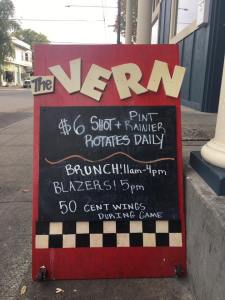 The VERN
$6 SHOT + PINT
RAINIER
ROTATES DAILY
BRUNCH! 11am-4pm
BLAZERS! 5pm
50 CENT WINGS
DURING GAME